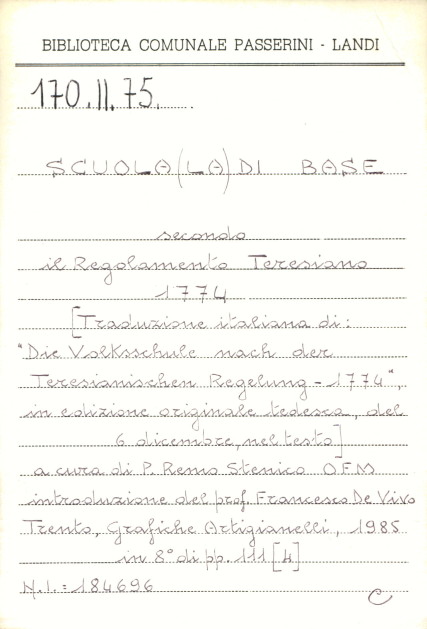 BIBLIOTECA COMUNALE PASSERINI - LANDI
170.II.75.
SCUOLA (LA) DI BASE
secondo
il Regolamento Teresiano
1774
[Traduzione italiana di:
"Die Volksschule nach der
Teresianischen Regelung - 1774",
in edizione originale tedesca, del
6 dicembre, nel testo]
a cura di P. Remo Stenico OFM
introduzione del prof. Francesco De Vivo
Trento, Grafiche Artigianelli, 1985
in 8° di pp. 111 [4]
N.I. = 184696
C